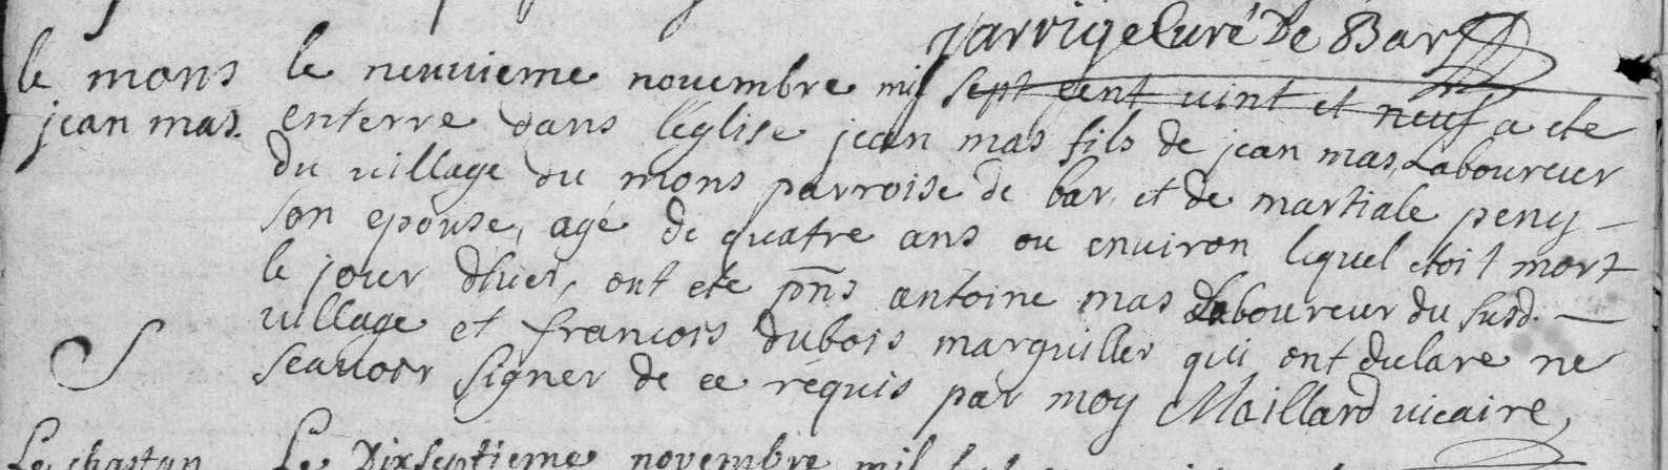 Jarrige Curé De Bar
le mons
jean mas.
le neuuieme nouembre mil sept cent uint et neuf a ete
enterre dans l'eglise jean mas fils de jean mas, Laboureur
du uillage du mons parroise de bar, et de martiale peny
son epouse, agé de quatre ans ou enuiron lequel etoit mort
le jour dhier, ont ete pns antoine mas Laboureur du susd.
uillage et francois dubois marguillier qui ont declare ne
scauoir signer de ce requis par moy Maillard uicaire,
S
Le chastan
Le Dixseptieme novembre mil